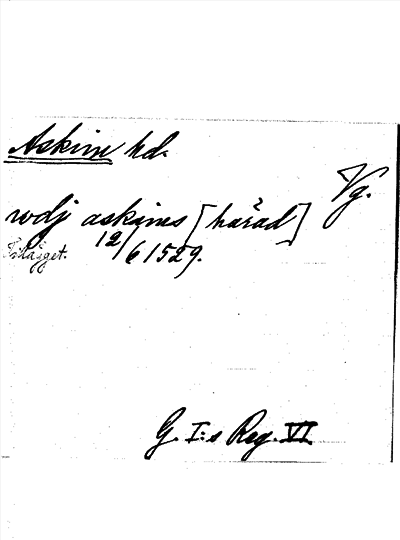 Askim hd.
Vg.
wdj askims [härad]
Tillägget. 12/6 1529.
G. I:s Reg. VI